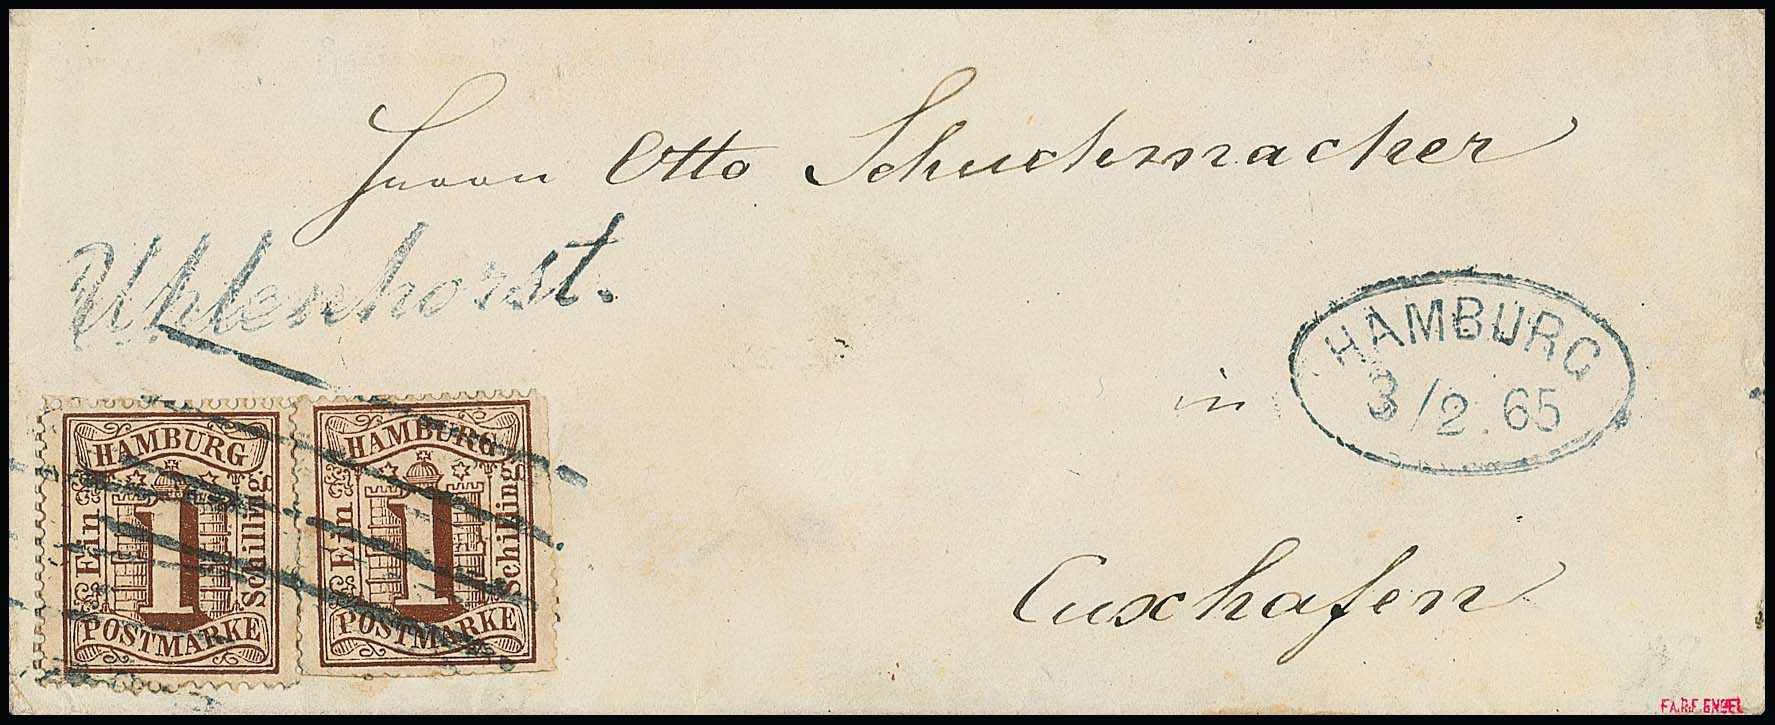 Herrn Otto Schuchmacher
Uhlenhorst.
HAMBURG
3/2.65
in
Cuxhafen
HAMBURG
Ein
1
Schilling
POSTMARKE
HAMBURG
Ein
1
Schilling
POSTMARKE